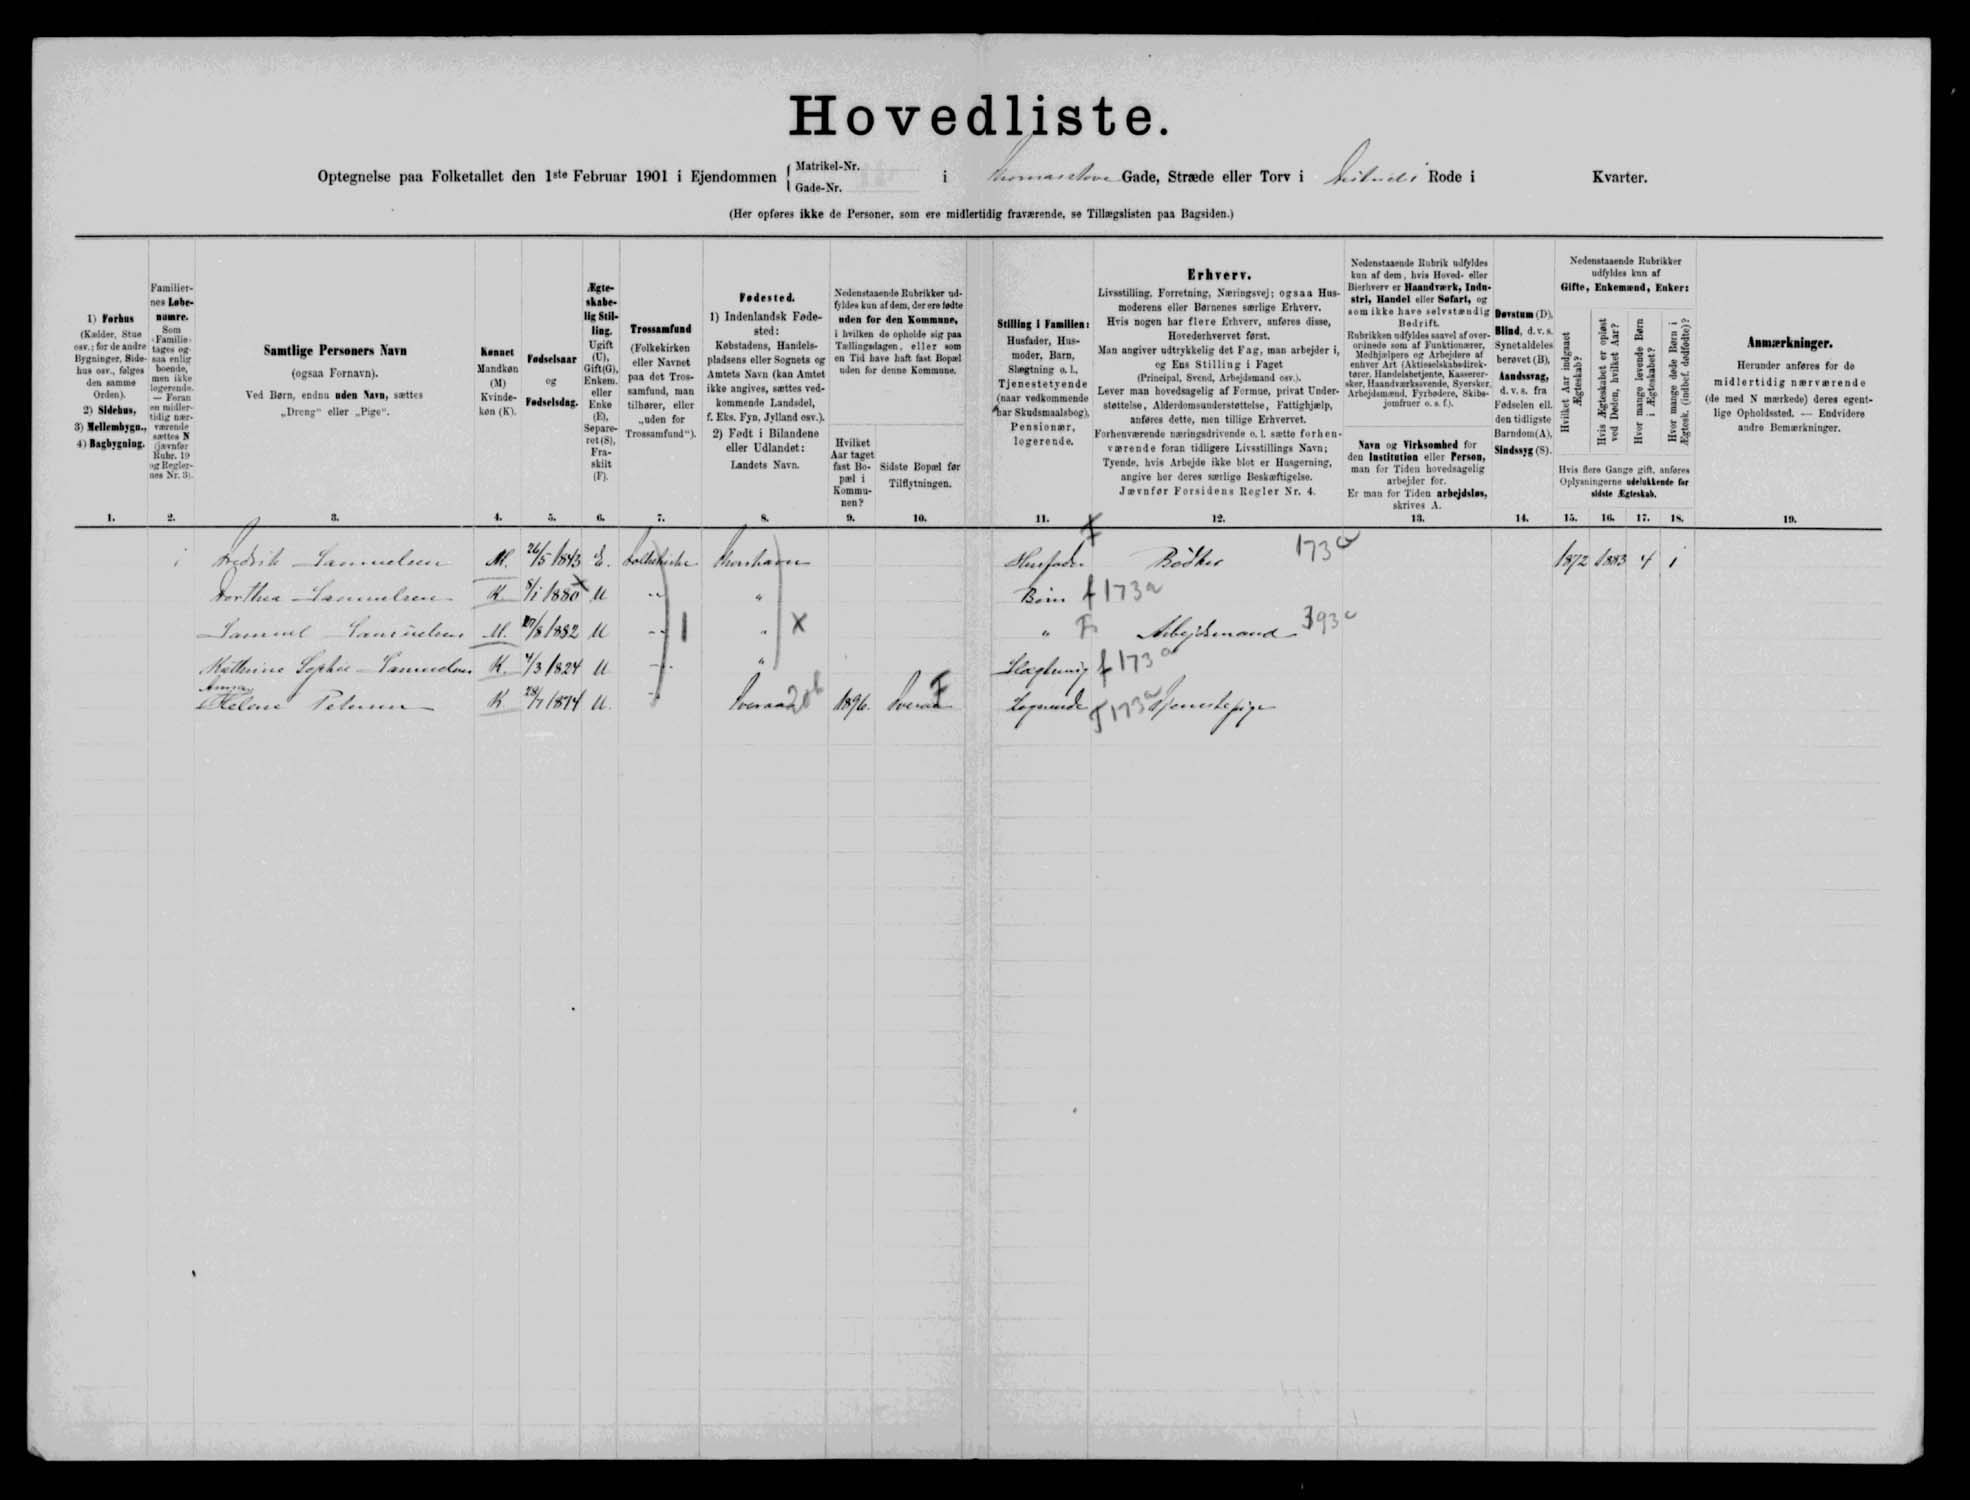 Hovedliste.
Optegnelse paa Folketallet den 1ste Februar 1901 i Ejendommen { Matrikel-Nr. Gade-Nr. i Gade, Stræde eller Torv i Rode i Kvarter.
(Her opføres ikke de Personer, som ere midlertidig fraværende, se Tillægslisten paa Bagsiden.)
1) Forhus
(Kælder, Stue
osv.; for de andre
Bygninger, Side-
hus osv., følges
den samme
Orden).
2) Sidehus,
3) Mellembygn.,
4) Bagbygning.
Familier-
nes Løbe-
numre.
Som
„Familie“
tages og-
saa enlig
boende,
men ikke
logerende.
— Foran
en midler-
tidig nær-
værende
sættes N
(jævnfør
Rubr. 19
og Regler-
nes Nr. 3).
Samtlige Personers Navn
(ogsaa Fornavn).
Ved Børn, endnu uden Navn, sættes
„Dreng“ eller „Pige“.
Kønnet
Mandkøn
(M)
Kvinde-
køn (K).
Fødselsaar
og
Fødselsdag.
Ægte-
skabe-
lig Stil-
ling.
Ugift
(U),
Gift(G),
Enkem.
eller
Enke
(E),
Separe-
ret (S),
Fra-
skilt
(F).
Trossamfund
(Folkekirken
eller Navnet
paa det Tros-
samfund, man
tilhører, eller
„uden for
Trossamfund“).
Fødested.
1) Indenlandsk Føde-
sted:
Købstadens, Handels-
pladsens eller Sognets og
Amtets Navn (kan Amtet
ikke angives, sættes ved-
kommende Landsdel,
f. Eks. Fyn, Jylland osv.).
2) Født i Bilandene
eller Udlandet:
Landets Navn.
Nedenstaaende Rubrikker ud-
fyldes kun af dem, der ere fødte
uden for den Kommune,
i hvilken de opholde sig paa
Tællingsdagen, eller som
en Tid have haft fast Bopæl
uden for denne Kommune.
Hvilket
Aar taget
fast Bo-
pæl i
Kommu-
nen?
Sidste Bopæl før
Tilflytningen.
Stilling i Familien:
Husfader, Hus-
moder, Barn,
Slægtning o. l.,
Tjenestetyende
(naar vedkommende
har Skudsmaalsbog),
Pensionær,
logerende.
Erhverv.
Livsstilling, Forretning, Næringsvej; ogsaa Hus-
moderens eller Børnenes særlige Erhverv.
Hvis nogen har flere Erhverv, anføres disse,
Hovederhvervet først.
Man angiver udtrykkelig det Fag, man arbejder i,
og Ens Stilling i Faget
(Principal, Svend, Arbejdsmand osv.).
Lever man hovedsagelig af Formue, privat Under-
støttelse, Alderdomsunderstøttelse, Fattighjælp,
anføres dette, men tillige Erhvervet.
Forhenværende næringsdrivende o. l. sætte forhen-
værende foran tidligere Livsstillings Navn;
Tyende, hvis Arbejde ikke blot er Husgerning,
angive her deres særlige Beskæftigelse.
Jævnfør Forsidens Regler Nr. 4.
Nedenstaaende Rubrik udfyldes
kun af dem, hvis Hoved- eller
Bierhverv er Haandværk, Indu-
stri, Handel eller Søfart, og
som ikke have selvstændig
Bedrift.
Rubrikken udfyldes saavel af over-
ordnede som af Funktionærer,
Medhjælpere og Arbejdere af
enhver Art (Aktieselskabsdirek-
tører, Handelsbetjente, Kasserer-
sker, Haandværkssvende, Syersker,
Arbejdsmænd, Fyrbødere, Skibs-
jomfruer o. s. f.).
Navn og Virksomhed for
den Institution eller Person,
man for Tiden hovedsagelig
arbejder for.
Er man for Tiden arbejdsløs,
skrives A.
Døvstum (D),
Blind, d. v. s.
Synet aldeles
berøvet (B),
Aandssvag,
d. v. s. fra
Fødselen ell.
den tidligste
Barndom(A),
Sindssyg (S).
Nedenstaaende Rubrikker
udfyldes kun af
Gifte, Enkemænd, Enker:
Hvilket Aar indgaaet
Ægteskab?
Hvis Ægteskabet er opløst
ved Døden, hvilket Aar?
Hvor mange levende Børn
i Ægteskabet?
Hvor mange døde Børn i
Ægtesk. (indbef. dødfødte)?
Hvis flere Gange gift, anføres
Oplysningerne udelukkende for
sidste Ægteskab.
Anmærkninger.
Herunder anføres for de
midlertidig nærværende
(de med N mærkede) deres egent-
lige Opholdssted. — Endvidere
andre Bemærkninger.
1. 2. 3. 4. 5. 6. 7. 8. 9. 10. 11. 12. 13. 14. 15. 16. 17. 18. 19.
1 Samuelsen M. 26/5 1843 E. Folkekirke Thorshavn Husfader Bødker 173a 1872 1883 4 1
Dorthea Samuelsen K 8/1 1880 U " " Barn f 173a
Samuel Samuelsen M. 27/8 1882 U " 1 " X " F Arbejdsmand 393c
Kathrine Sophie Samuelsen K. 4/3 1824 U " " Slægtning f 173a
Anna
Helene Petersen K. 28/7 1874 U. " 20b 1896. F Logerende f 173a Tjenestepige